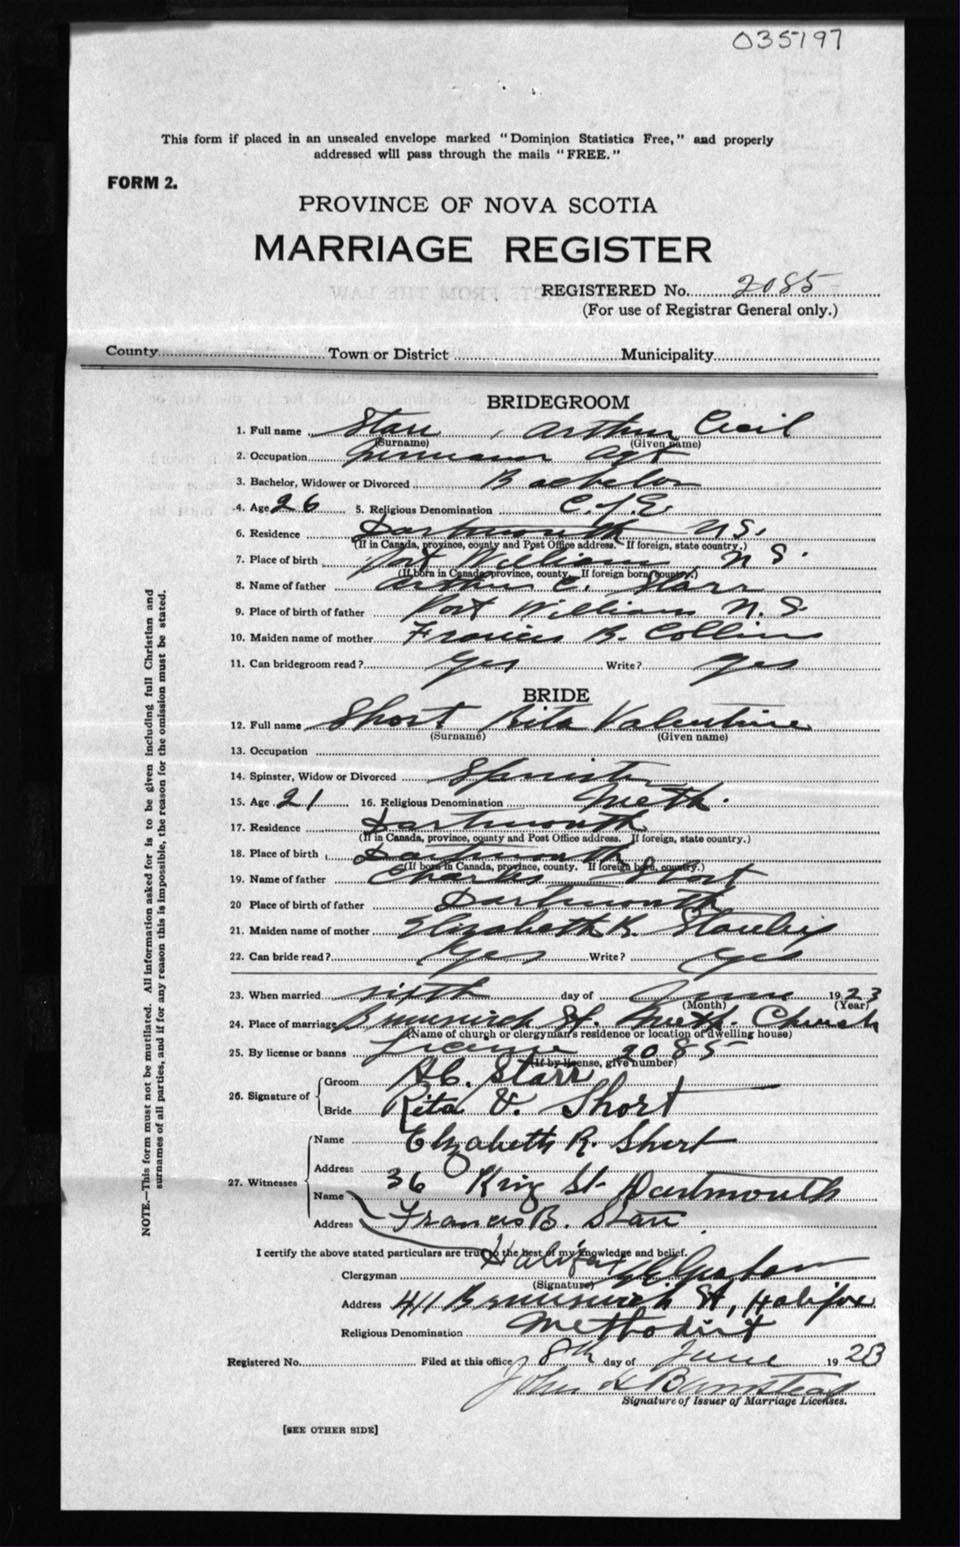 035197
This form if placed in an unsealed envelope marked "Dominion Statistics Free," and properly
addressed will pass through the mails "FREE."
FORM 2.
PROVINCE OF NOVA SCOTIA
MARRIAGE REGISTER
REGISTERED No. 2085
(For use of Registrar General only.)
County Town or District Municipality
BRIDEGROOM
1. Full name Starr, Arthur Cecil
(Surname) (Given name)
2. Occupation Insurance Agt
3. Bachelor, Widower or Divorced Bachelor
4. Age 26 5. Religious Denomination C. of E.
6. Residence Dartmouth N.S.
(If in Canada, province, county and Post Office address. If foreign, state country.)
7. Place of birth Port William N S.
(If born in Canada, province, county. If foreign born, country.)
8. Name of father Arthur C. Starr
9. Place of birth of father Port William N. S.
10. Maiden name of mother Francis B. Collins
11. Can bridegroom read? Yes Write? Yes
BRIDE
12. Full name Short Rita Valentine
(Surname) (Given name)
13. Occupation
14. Spinster, Widow or Divorced Spinster
15. Age 21 16. Religious Denomination Meth.
17. Residence Dartmouth
(If in Canada, province, county and Post Office address. If foreign, state country.)
18. Place of birth Dartmouth
(If born in Canada, province, county. If foreign born, country.)
19. Name of father Charles Short
20 Place of birth of father Dartmouth
21. Maiden name of mother Elizabeth R.
22. Can bride read? Yes Write? Yes
23. When married sixth day of June 1923
(Month) (Year)
24. Place of marriage Brunswick St. Meth. Church
(Name of church or clergyman's residence or location of dwelling house)
25. By license or banns License 2085
(If by license, give number)
26. Signature of Groom A.C. Starr
Bride Rita V. Short
27. Witnesses Name Elizabeth R. Short
Address 36 King St. Dartmouth
Name Francis B. Starr
Address Halifax
I certify the above stated particulars are true to the best of my knowledge and belief.
Clergyman
(Signature)
Address 411 Brunswick St, Halifax
Religious Denomination Methodist
Registered No. Filed at this office 8th day of June 1923
John
Signature of Issuer of Marriage Licenses.
[SEE OTHER SIDE]
NOTE.—This form must not be mutilated. All information asked for is to be given including full Christian and
surnames of all parties, and if for any reason this is impossible, the reason for the omission must be stated.